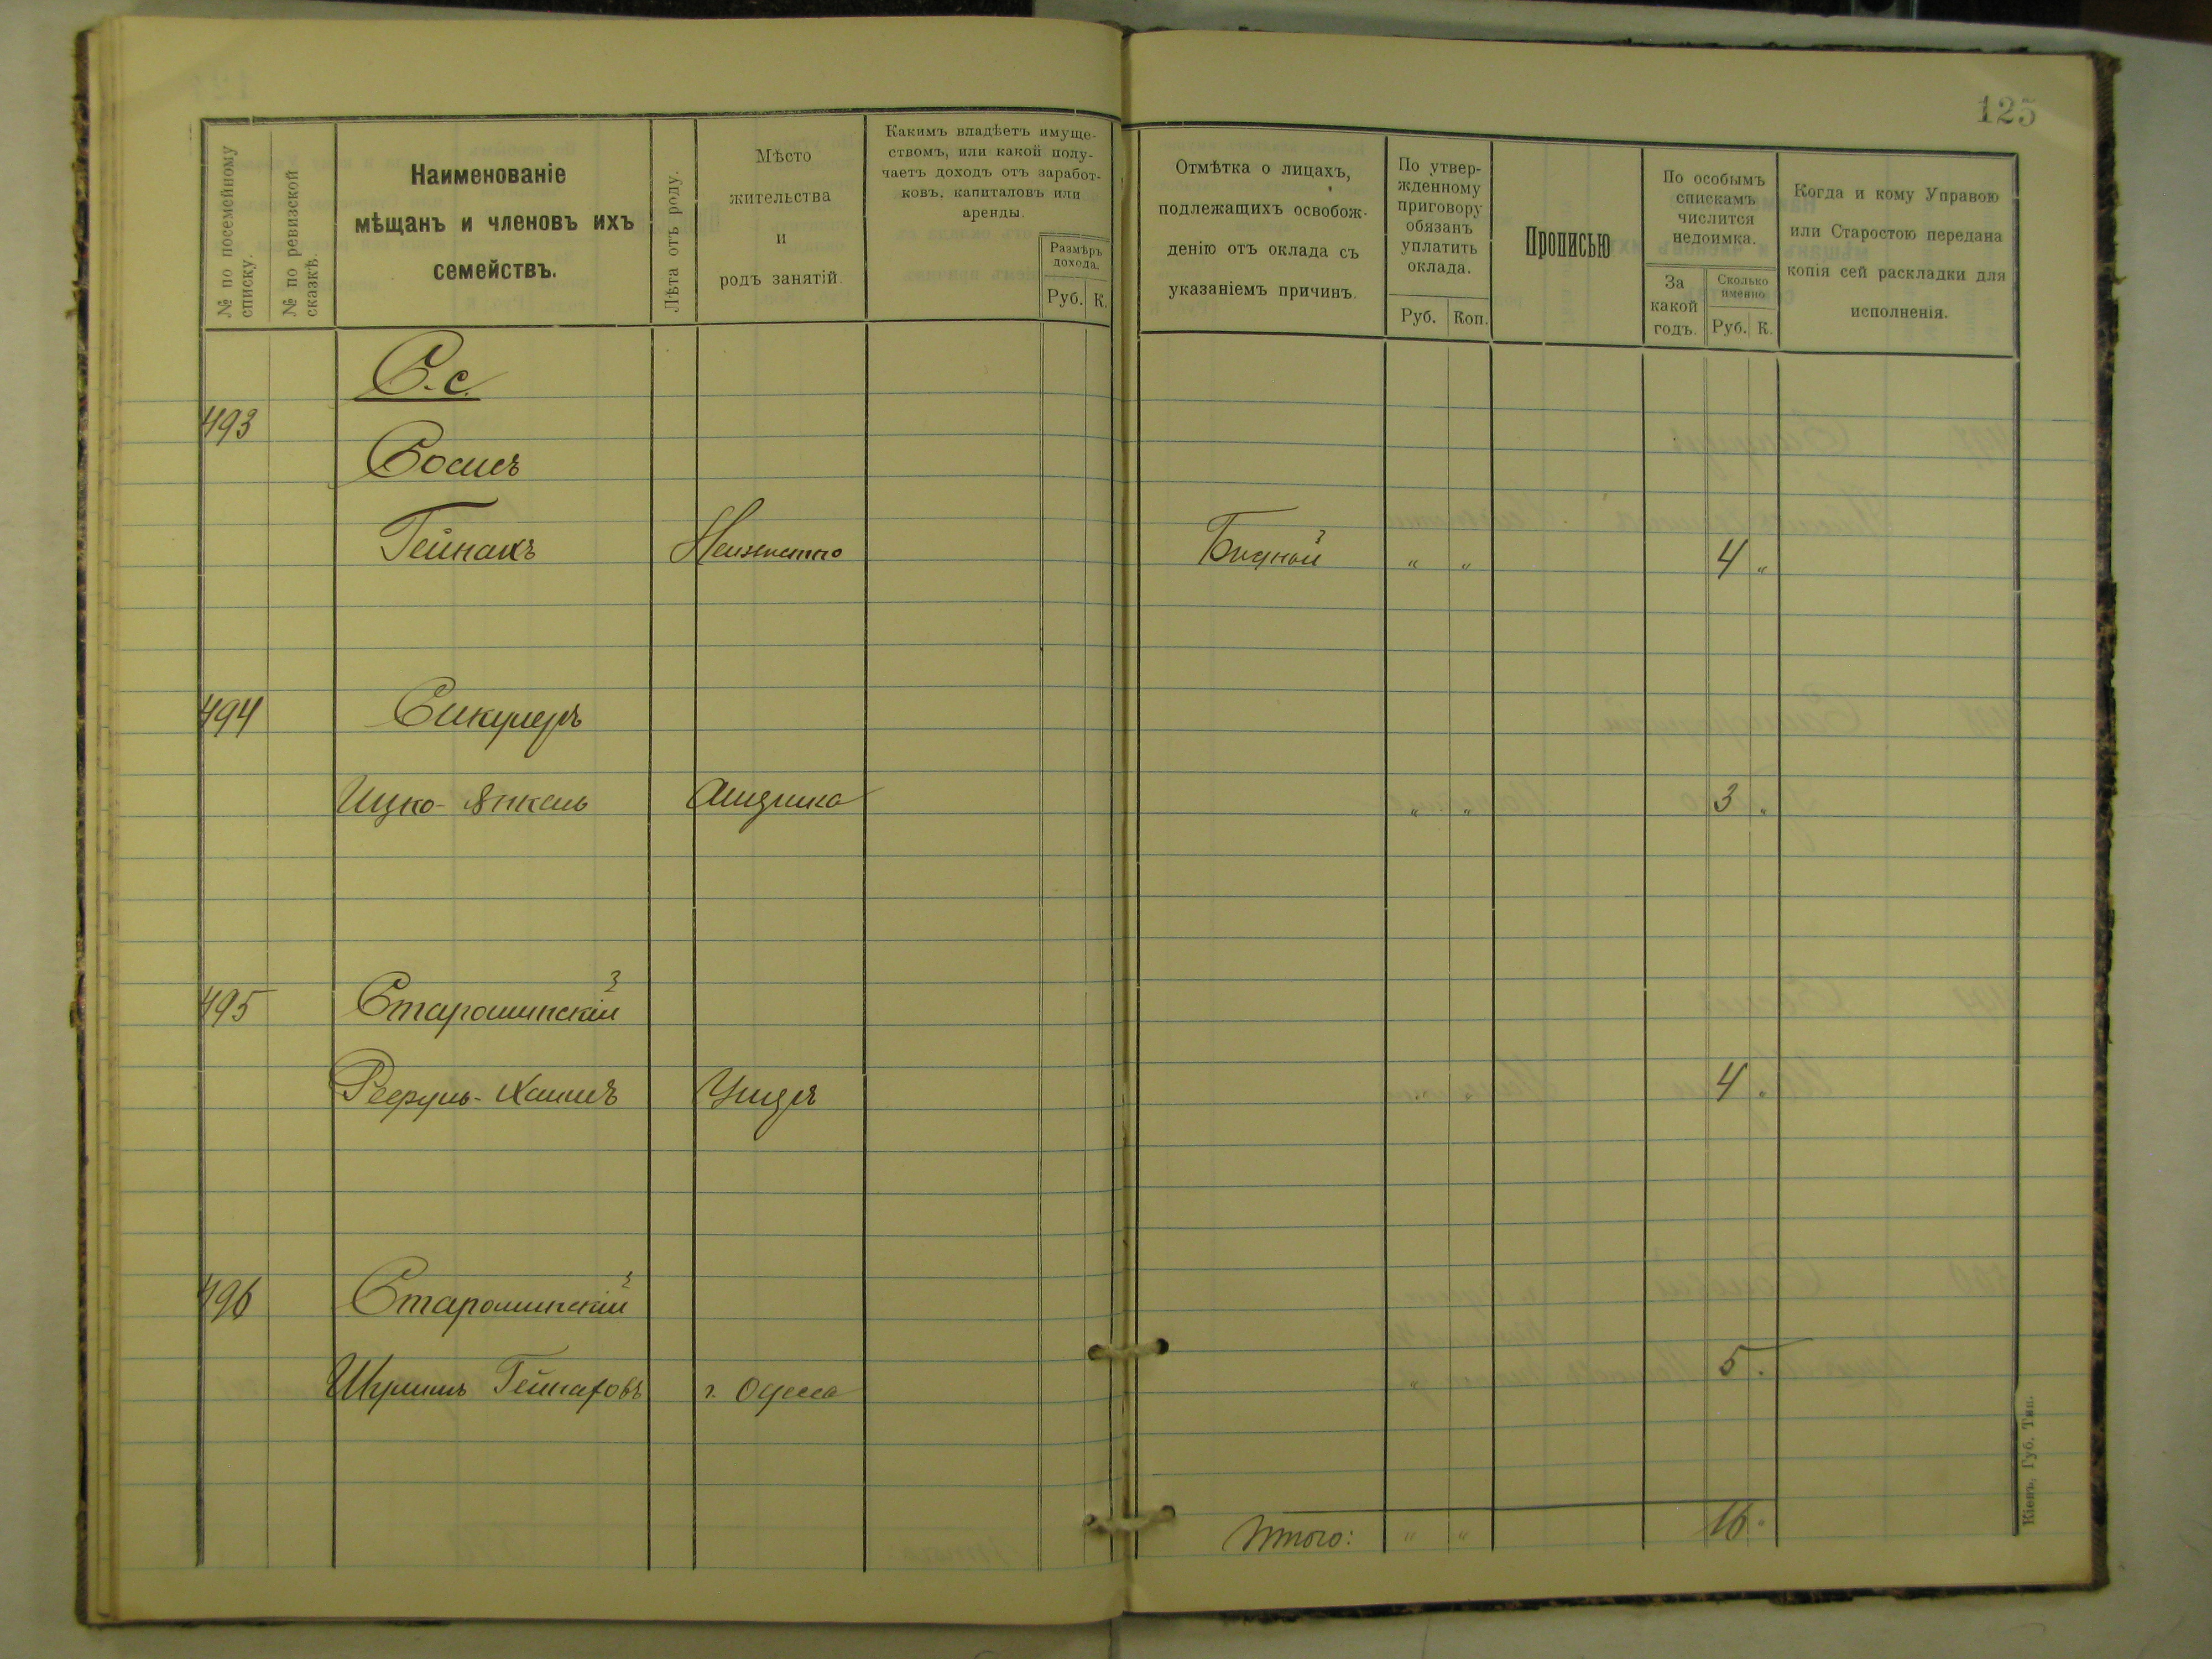 125
№ по посемейному списку.
№ по ревизской сказкѣ.
Наименованіе
мѣщанъ и членовъ ихъ
семействъ.
Лѣта отъ роду.
Мѣсто
жительства
и
родъ занятій.
Какимъ владѣетъ имуще-
ствомъ, или какой полу-
чаетъ доходъ отъ заработ-
ковъ, капиталовъ или
аренды.
Размѣръ
дохода.
Руб. К.
Отмѣтка о лицахъ,
подлежащихъ освобож-
денію отъ оклада съ
указаніемъ причинъ.
По утвер-
жденному
приговору
обязанъ
уплатить
оклада.
Руб. Коп.
Прописью
По особымъ
спискамъ
числится
недоимка.
За
какой
годъ.
Сколько
именно
Руб. К.
Когда и кому Управою
или Старостою передана
копія сей раскладки для
исполненія.
С.с.
493
Сосис
Гейнахъ " " 4 "
494 Сикулеръ
Ицко-Янкель " " 3 "
495 Старошинскій
4 "
496 Старошинскій
Гейнаховъ г. Одесса " 5 "
Итого: " " 16 "
Кіевъ, Губ. Тип.